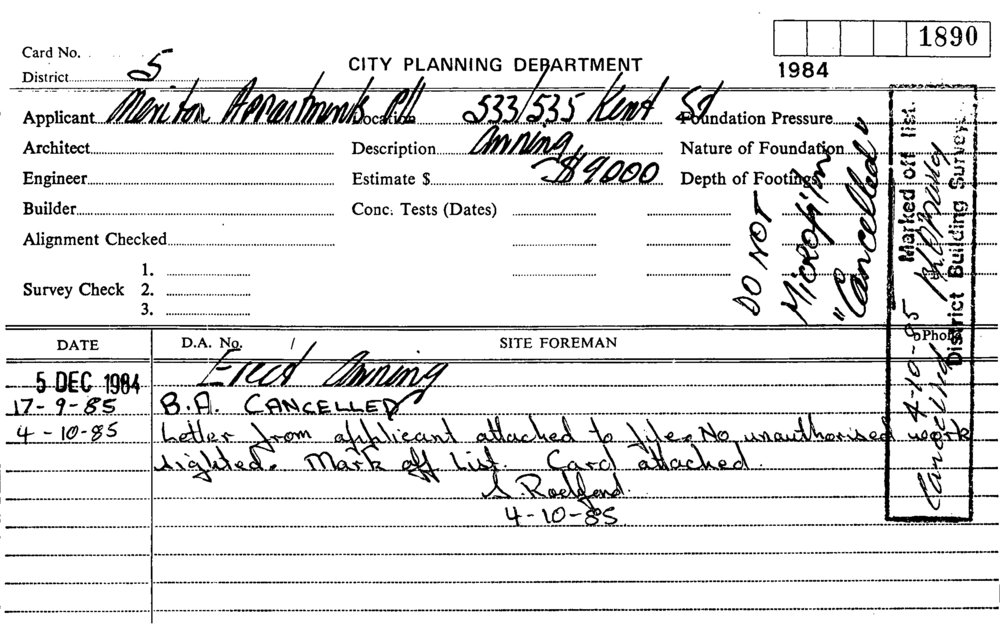 1890
Card No.
District 5
CITY PLANNING DEPARTMENT
1984
Applicant Meriton Appartments P/L Location 533/535 Kent St Foundation Pressure
Architect Description Awning Nature of Foundation
Engineer Estimate $ $9000 Depth of Footings
Builder Conc. Tests (Dates)
Alignment Checked
1.
Survey Check 2.
3.
DO NOT
Microfilm
"Cancelled"
Marked off list.
Cancelled 4-10-85
District Building Surveyor
DATE D.A. No. / SITE FOREMAN Phone
5 DEC 1984 Erect Awning
17-9-85 B.A. CANCELLED
4-10-85 Letter from applicant attached to file. No unauthorised work
sighted. Mark off List. Card attached.
4-10-85